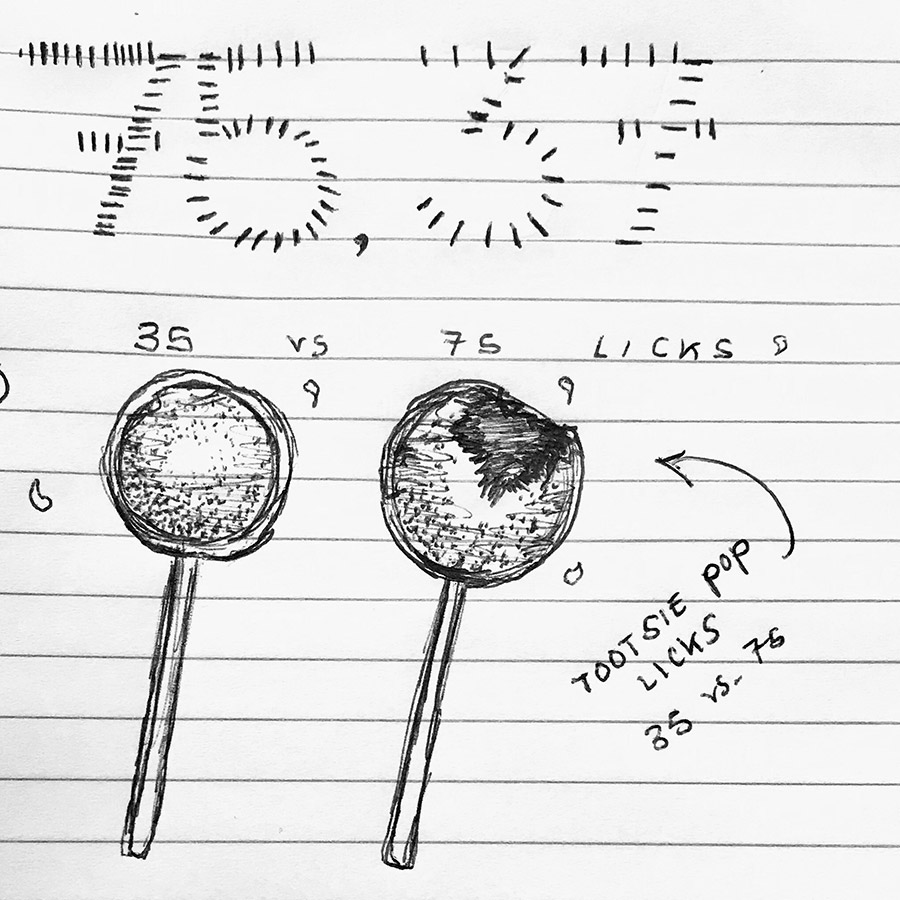 75, 37
35 vs 75 LICKS
TOOTSIE POP
LICKS
35 vs. 75